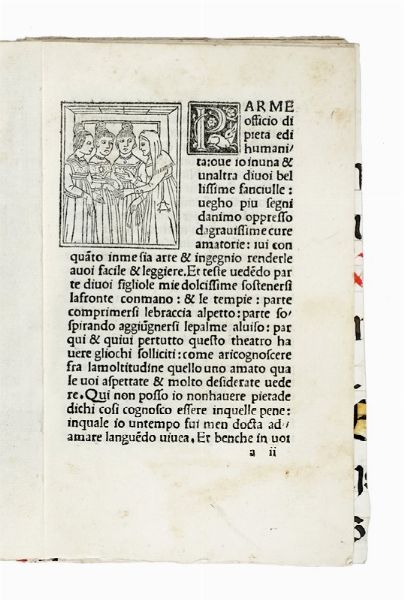 PARME
officio di
pieta edi
humani
ta:oue io inuna &
unaltra diuoi bel
lissime fanciulle:
uegho piu segni
danimo oppresso
dagrauissime cure
amatorie: iui con
quāto inme sia arte & ingegnio renderle
auoi facile & leggiere. Et teste uedēdo par
te diuoi figliole mie dolcissime sostenersi
lafronte conmano: & le tempie: parte
comprimersi lebraccia alpetto: parte so/
spirando aggiūgnersi lepalme aluiso: par
qui & quiui pertutto questo theatro ha
uere gliochi solliciti: come aricognoscere
fra lamoltitudine quello uno amato qua
le uoi aspettate & molto desiderate uede
re. Qui non posso io nonhauere pietade
dichi cosi cognosco essere inquelle pene:
inquale io untempo fui men docta ad/
amare languēdo uiuea. Et benche in uoi
a ii